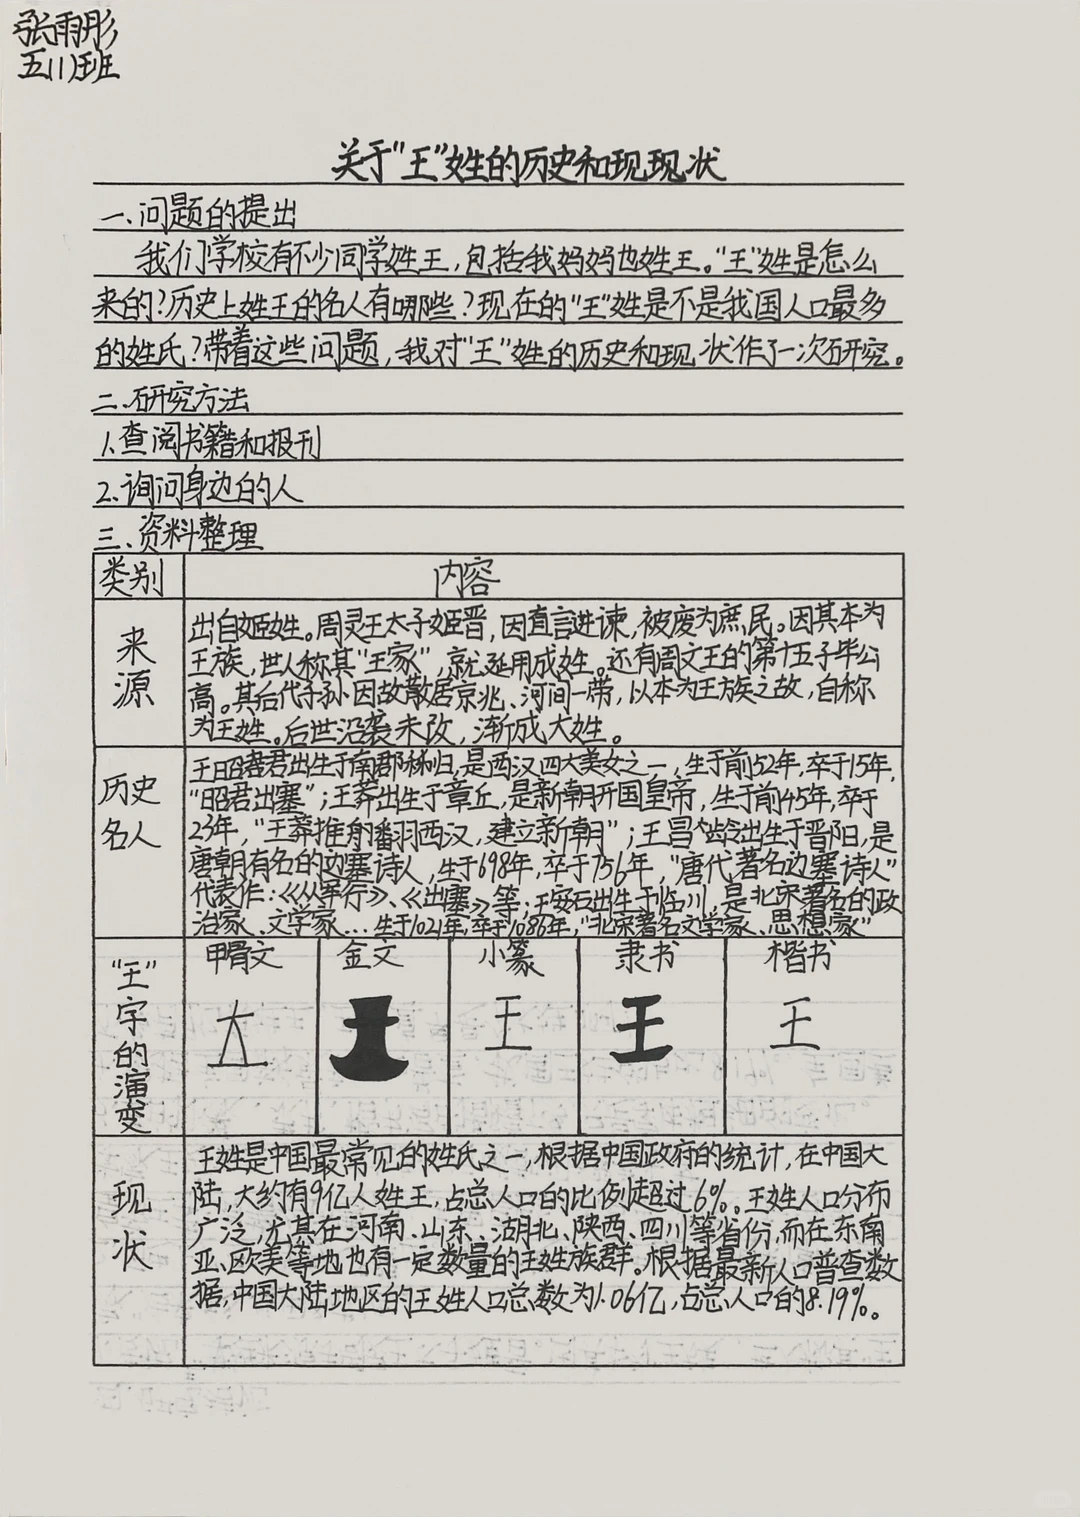 张雨彤
五(1)班
关于"王"姓的历史和现现状
一、问题的提出
我们学校有不少同学姓王，包括我妈妈也姓王。"王"姓是怎么
来的？历史上姓王的名人有哪些？现在的"王"姓是不是我国人口最多
的姓氏？带着这些问题，我对"王"姓的历史和现状作了一次研究。
二、研究方法
1.查阅书籍和报刊
2.询问身边的人
三、资料整理
类别 内容
来源
出自姬姓。周灵王太子姬晋，因直言进谏，被废为庶民。因其本为
王族，世人称其"王家"，就延用成姓。还有周文王的第十五子毕公
高。其后代子孙因故散居京兆、河间一带，以本为王族之故，自称
为王姓。后世沿袭未改，渐成大姓。
历史名人
王昭君出生于南郡秭归，是西汉四大美女之一，生于前52年，卒于15年，
"昭君出塞"；王莽出生于章丘，是新朝开国皇帝，生于前45年，卒于
23年，"王莽推翻西汉，建立新朝"；王昌龄出生于晋阳，是
唐朝有名的边塞诗人，生于698年，卒于756年，"唐代著名边塞诗人"
代表作：《从军行》、《出塞》等；王安石出生于临川，是北宋著名的政
治家、文学家…生于1021年，卒于1086年，"北宋著名文学家、思想家"
"王"字的演变
甲骨文 金文 小篆 隶书 楷书
王 王 王
现状
王姓是中国最常见的姓氏之一，根据中国政府的统计，在中国大
陆，大约有9亿人姓王，占总人口的比例超过6%。王姓人口分布
广泛，尤其在河南、山东、湖北、陕西、四川等省份，而在东南
亚、欧美等地也有一定数量的王姓族群。根据最新人口普查数
据，中国大陆地区的王姓人口总数为1.06亿，占总人口的8.19%。